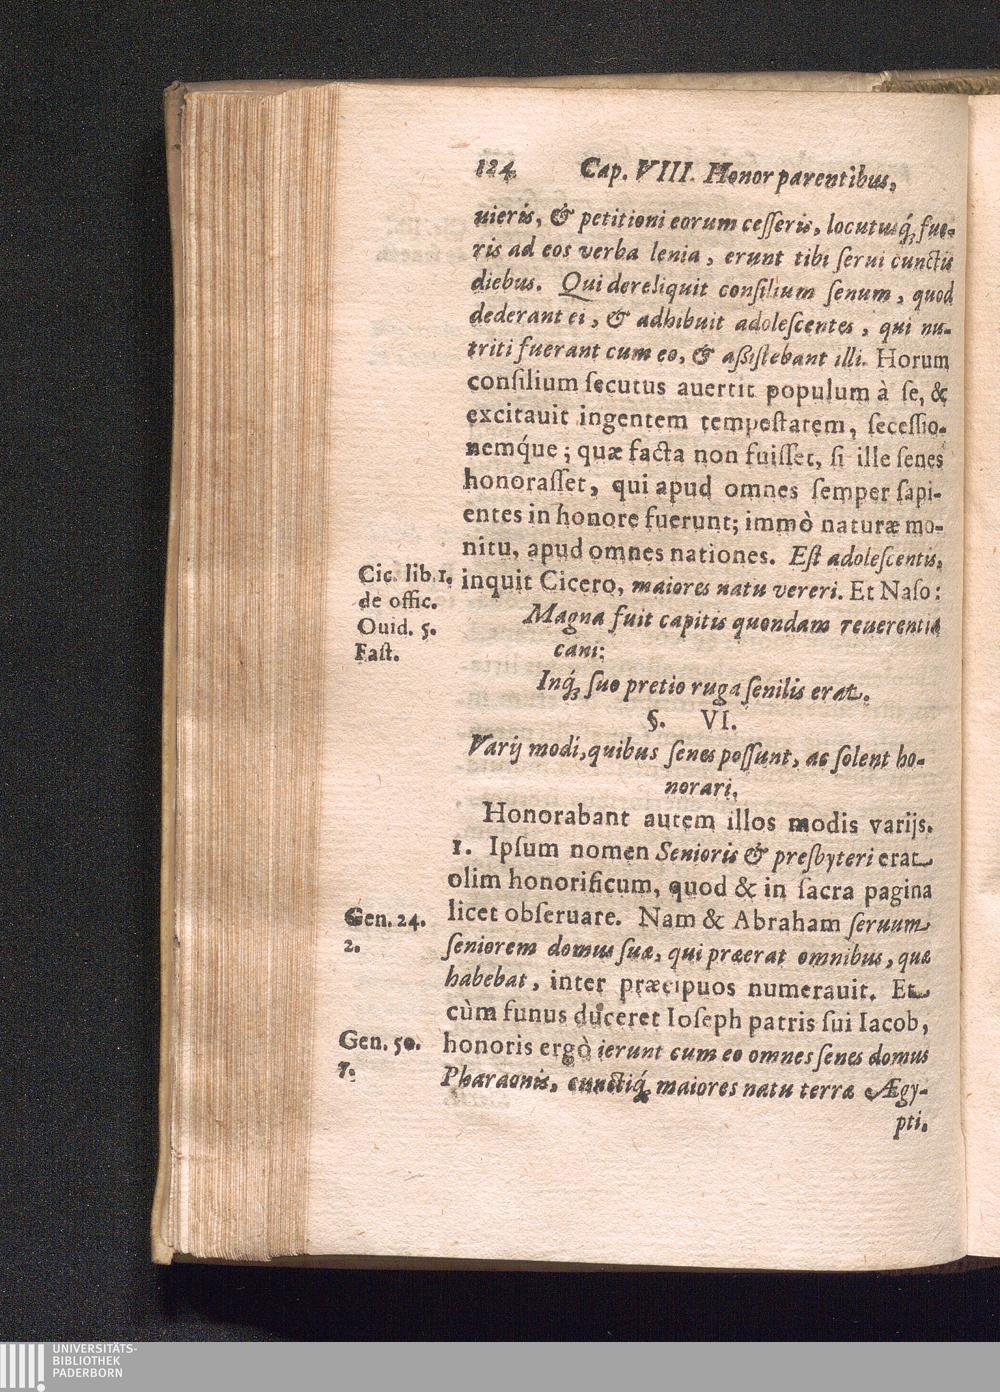 124 Cap. VIII. Honor parentibus,
uieris, & petitioni eorum ceſſeris, locutusq́; fue-
ris ad eos verba lenia, erunt tibi ſerui cunctis
diebus. Qui dereliquit conſilium ſenum, quod
dederant ei, & adhibuit adoleſcentes, qui nu-
triti fuerant cum eo, & aßiſtebant illi. Horum
conſilium ſecutus auertit populum à ſe, &
excitauit ingentem tempeſtatem, ſeceſſio-
nemq́ue; quæ facta non fuiſſet, ſi ille ſenes
honoraſſet, qui apud omnes ſemper ſapi-
entes in honore fuerunt; immò naturæ mo-
nitu, apud omnes nationes. Eſt adoleſcentis,
Cic. lib. 1.
de offic.
Ouid. 5.
Faſt.
inquit Cicero, maiores natu vereri. Et Naſo:
Magna fuit capitis quondam reuerentia
cani:
Inq́; ſuo pretio ruga ſenilis erat.
§. VI.
Varij modi, quibus ſenes poſſunt, ac ſolent ho-
norari.
Honorabant autem illos modis varijs.
1. Ipſum nomen Senioris & preſbyteri erat
olim honorificum, quod & in ſacra pagina
Gen. 24.
2.
licet obſeruare. Nam & Abraham ſeruum
ſeniorem domus ſuæ, qui præerat omnibus, quæ
habebat, inter præcipuos numerauit. Et
cùm funus duceret Ioſeph patris ſui Iacob,
Gen. 50.
7.
honoris ergò ierunt cum eo omnes ſenes domus
Pharaonis, cunctiq́; maiores natu terræ Ægy-
pti.
UNIVERSITÄTS-
BIBLIOTHEK
PADERBORN